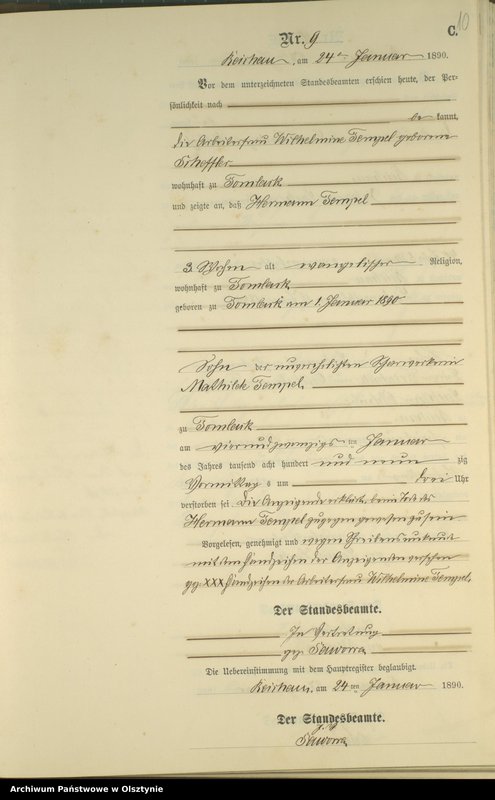 C.
10
Nr. 9
Reichau, am 24ten Januar 1890.
Vor dem unterzeichneten Standesbeamten erschien heute, der Per-
sönlichkeit nach
be kannt,
die Arbeiterfrau Wilhelmine Tempel geborene
Scheffler
wohnhaft zu Tomlack
und zeigte an, daß Hermann Tempel
3 Wochen alt evangelischer Religion,
wohnhaft zu Tomlack
geboren zu Tomlack am 1. Januar 1890
Sohn der unverehelichten Scharwerkerin
Mathilde Tempel,
zu Tomlack
am vierundzwanzigsten Januar
des Jahres tausend acht hundert und neun zig
Vormittags um drei Uhr
verstorben sei. Die Anzeigende erklärt, beim Tode des
Hermann Tempel zugegen gewesen zu sein
Vorgelesen, genehmigt und wegen Schreibensunkunde
mit dem Handzeichen der Anzeigenden versehen
gez. XXX Handzeichen der Arbeiterfrau Wilhelmine Tempel,
Der Standesbeamte.
In Vertretung
gez.
Die Uebereinstimmung mit dem Hauptregister beglaubigt.
Reichau, am 24ten Januar 1890.
Der Standesbeamte.
Archiwum Państwowe w Olsztynie